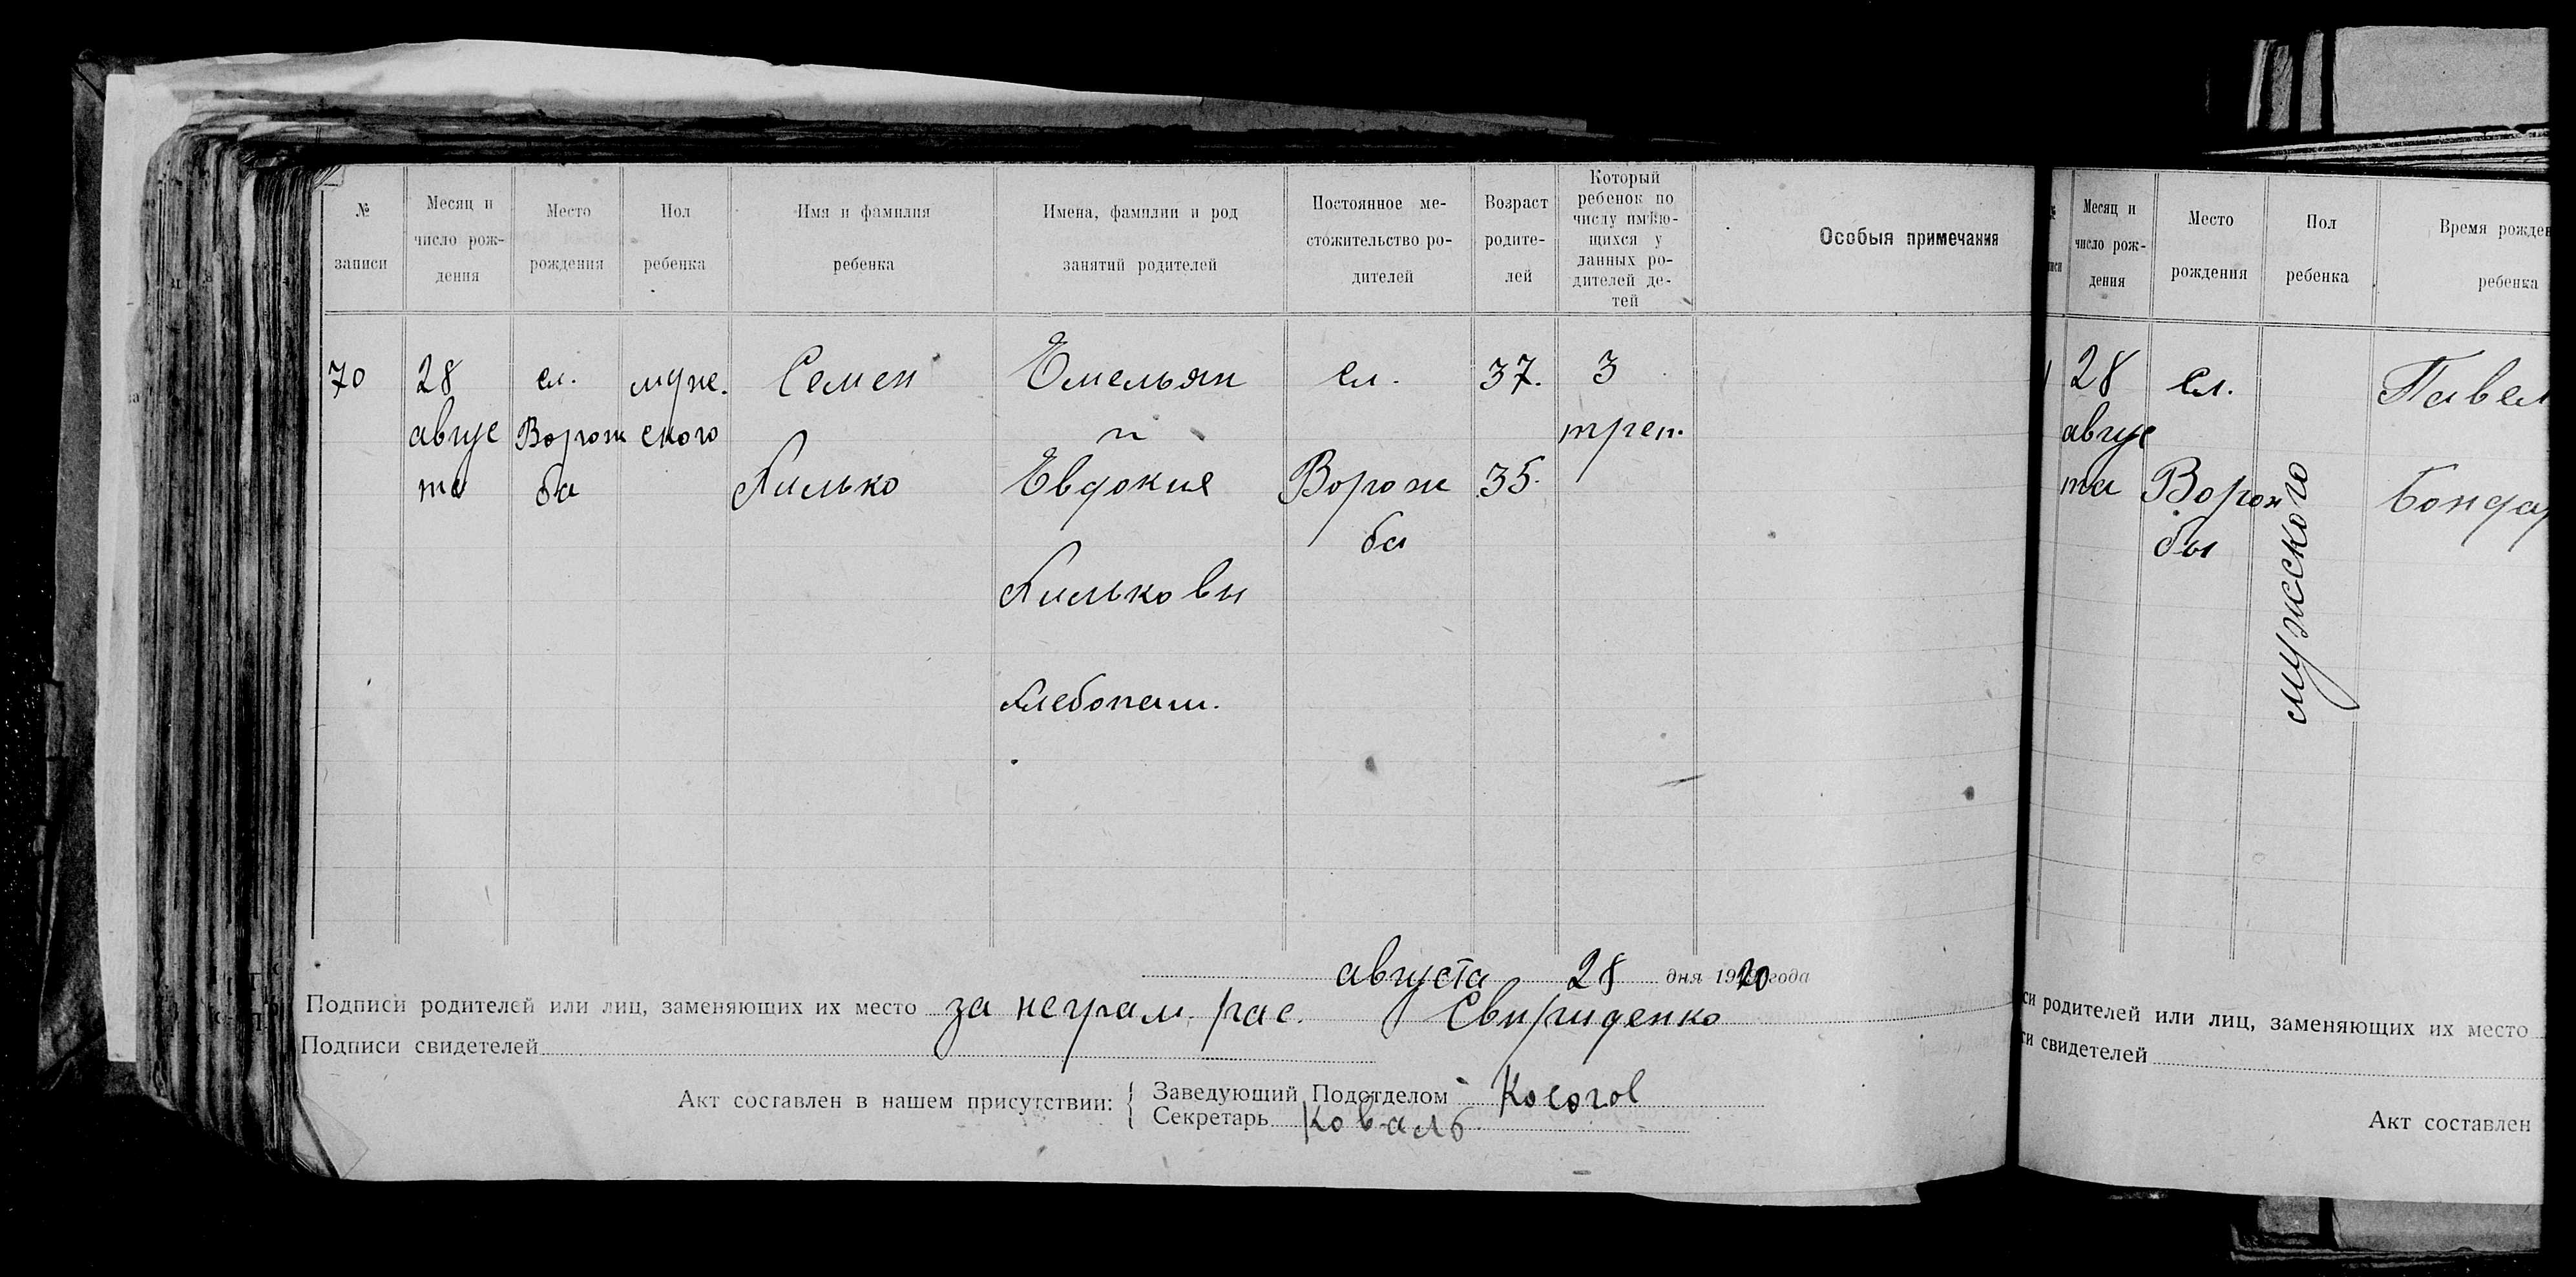 №
записи
Месяц и
число рож-
дения
Место
рождения
Пол
ребенка
Имя и фамилия
ребенка
Имена, фамилии и род
занятий родителей
Постоянное ме-
стожительство ро-
дителей
Возраст
родите-
лей
Который
ребенок по
числу имѣю-
щихся у
данных ро-
дителей де-
тей
Особыя примечания
70
28
авгус
та
сл.
Ворож
ба
муже.
ского
Семен
Хилько
Емельян
и
Евдокия
Хильковы
Хлебопаш.
сл.
Ворож
ба
37.
35.
3
трет.
августа 28 дня 1920 года
Подписи родителей или лиц, заменяющих их место за неграм. рас. Свириденко
Подписи свидетелей
Акт составлен в нашем присутствии:
Заведующий Подотделом Косогов
Секретарь Коваль
Месяц и
число рож-
дения
Место
рождения
Пол
ребенка
Время рожден
ребенка
28
авгус
та
сл.
Ворож
бы
мужского
Павел
Бондар
си родителей или лиц, заменяющих их место
си свидетелей
Акт составлен